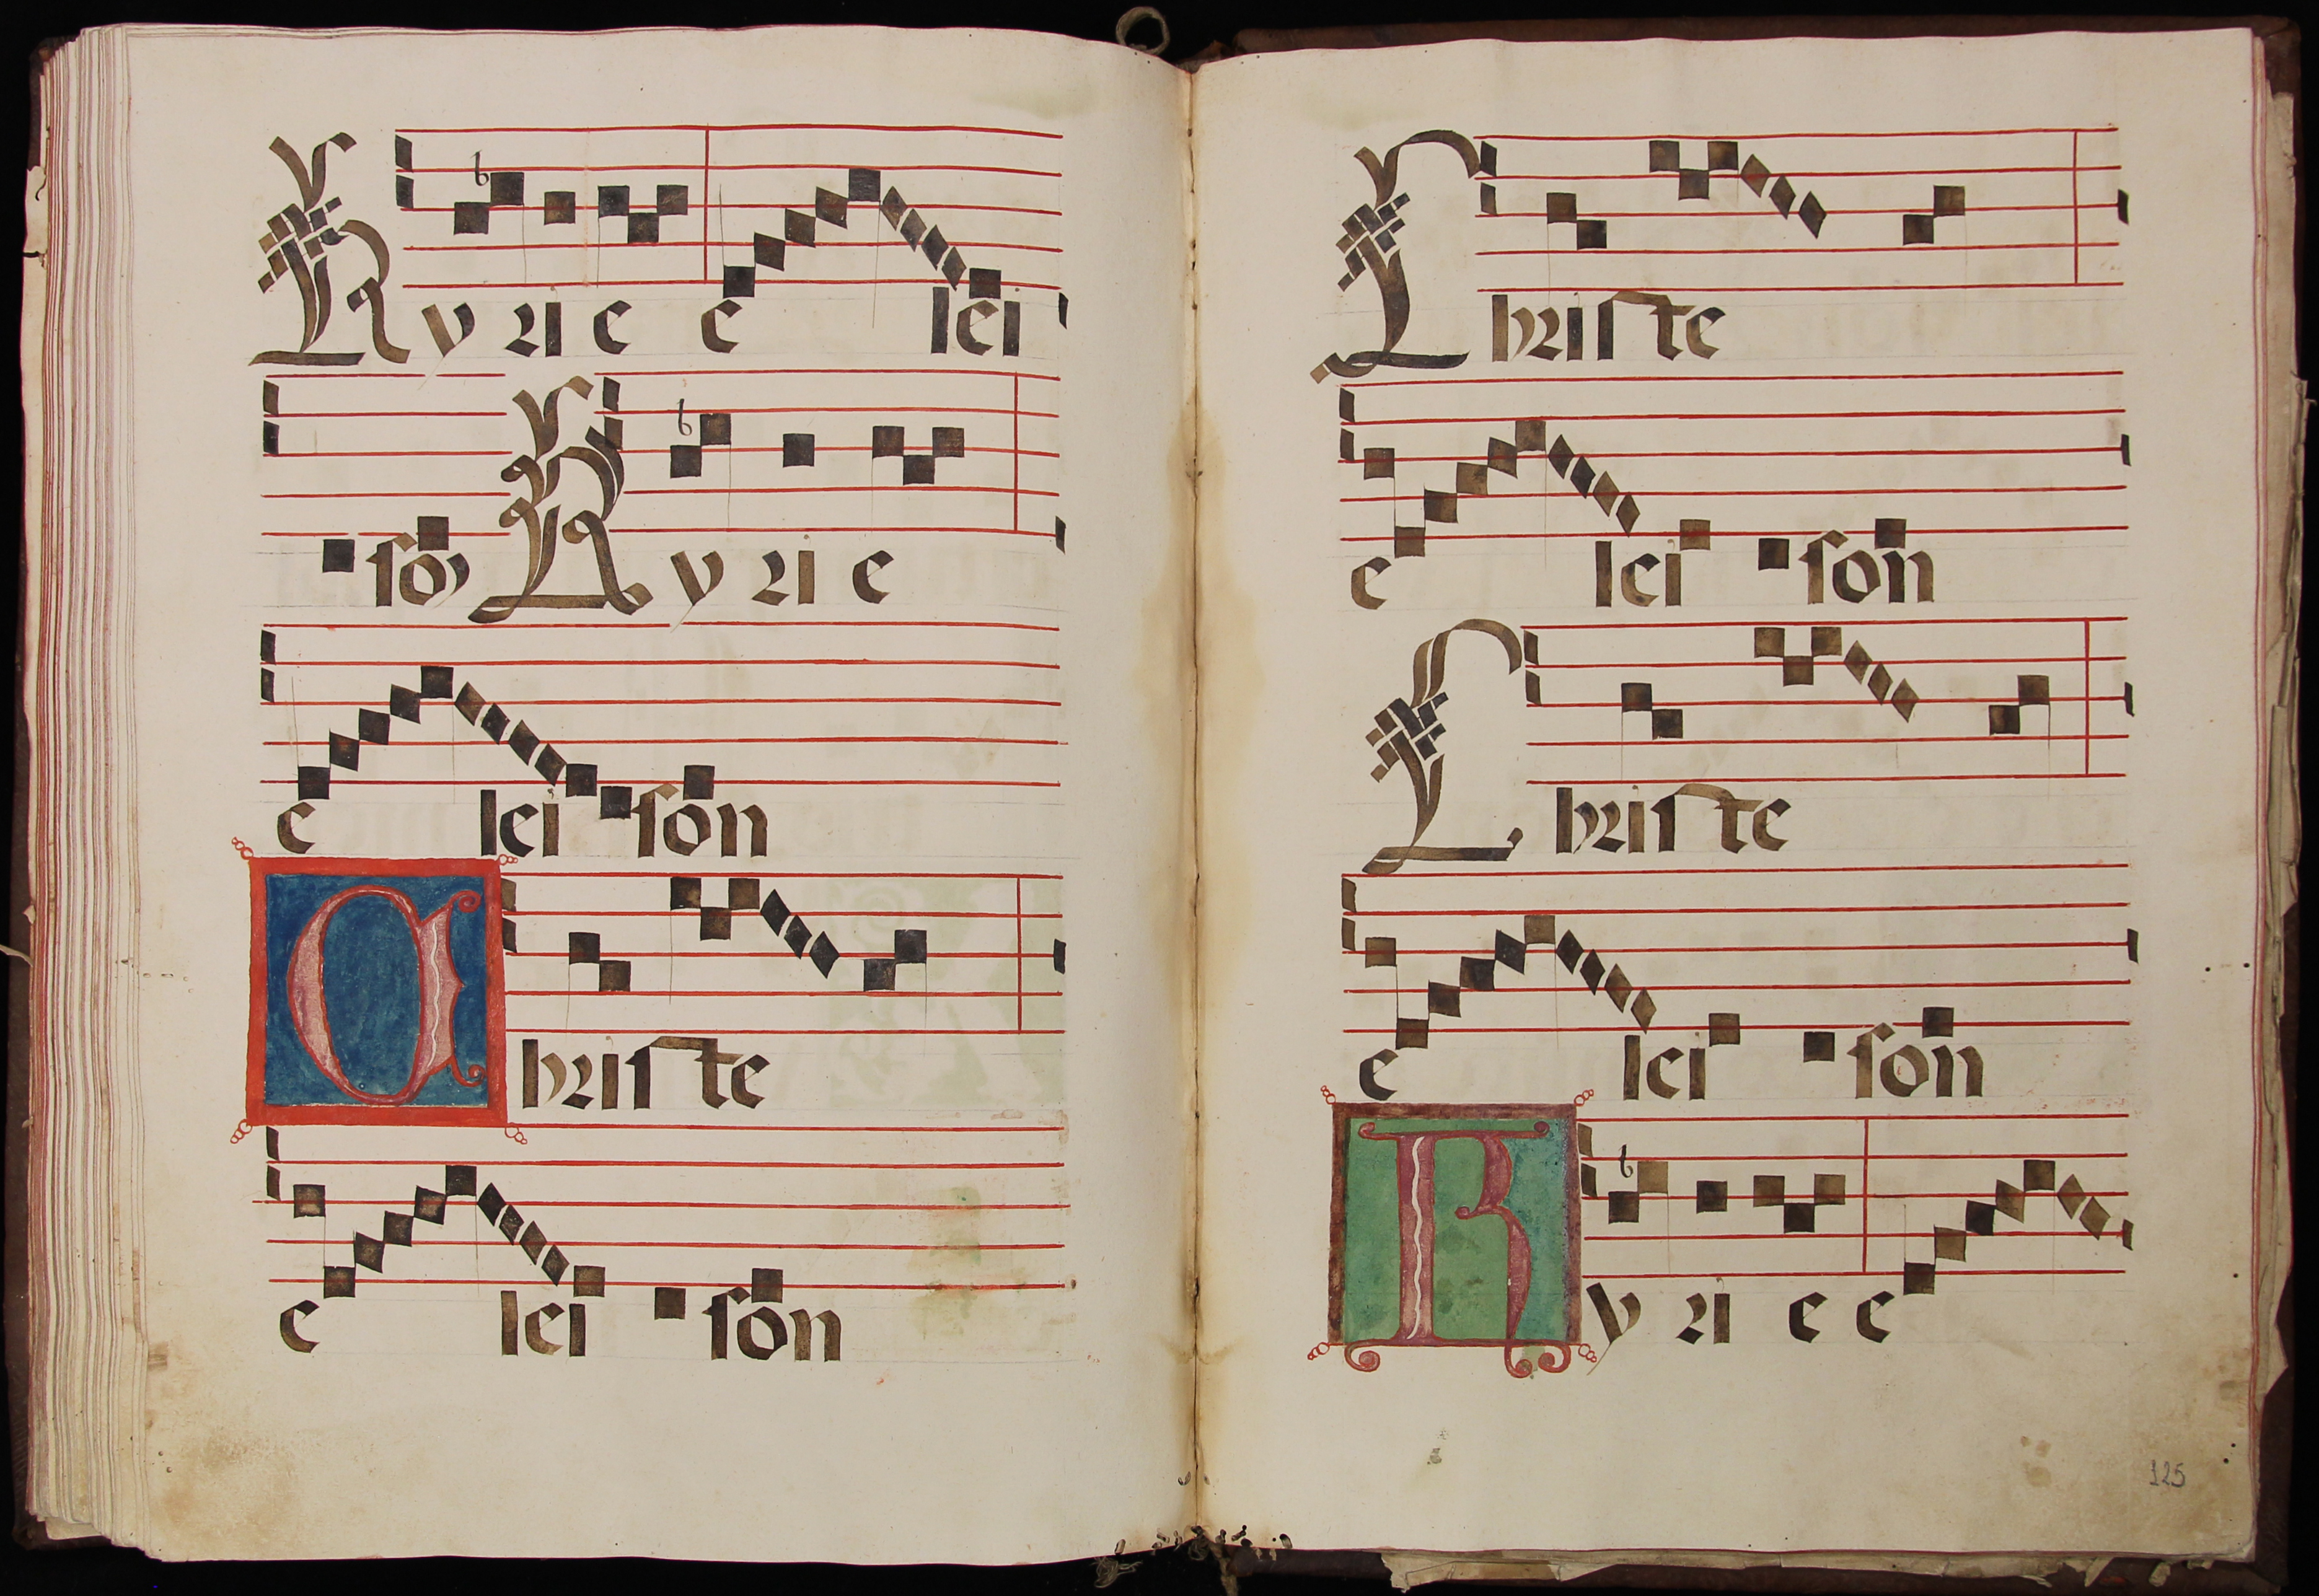 Kyrie elei
son Kyrie
eleison
Christe
eleison
Christe
eleison
Christe
eleison
Kyrie e
125